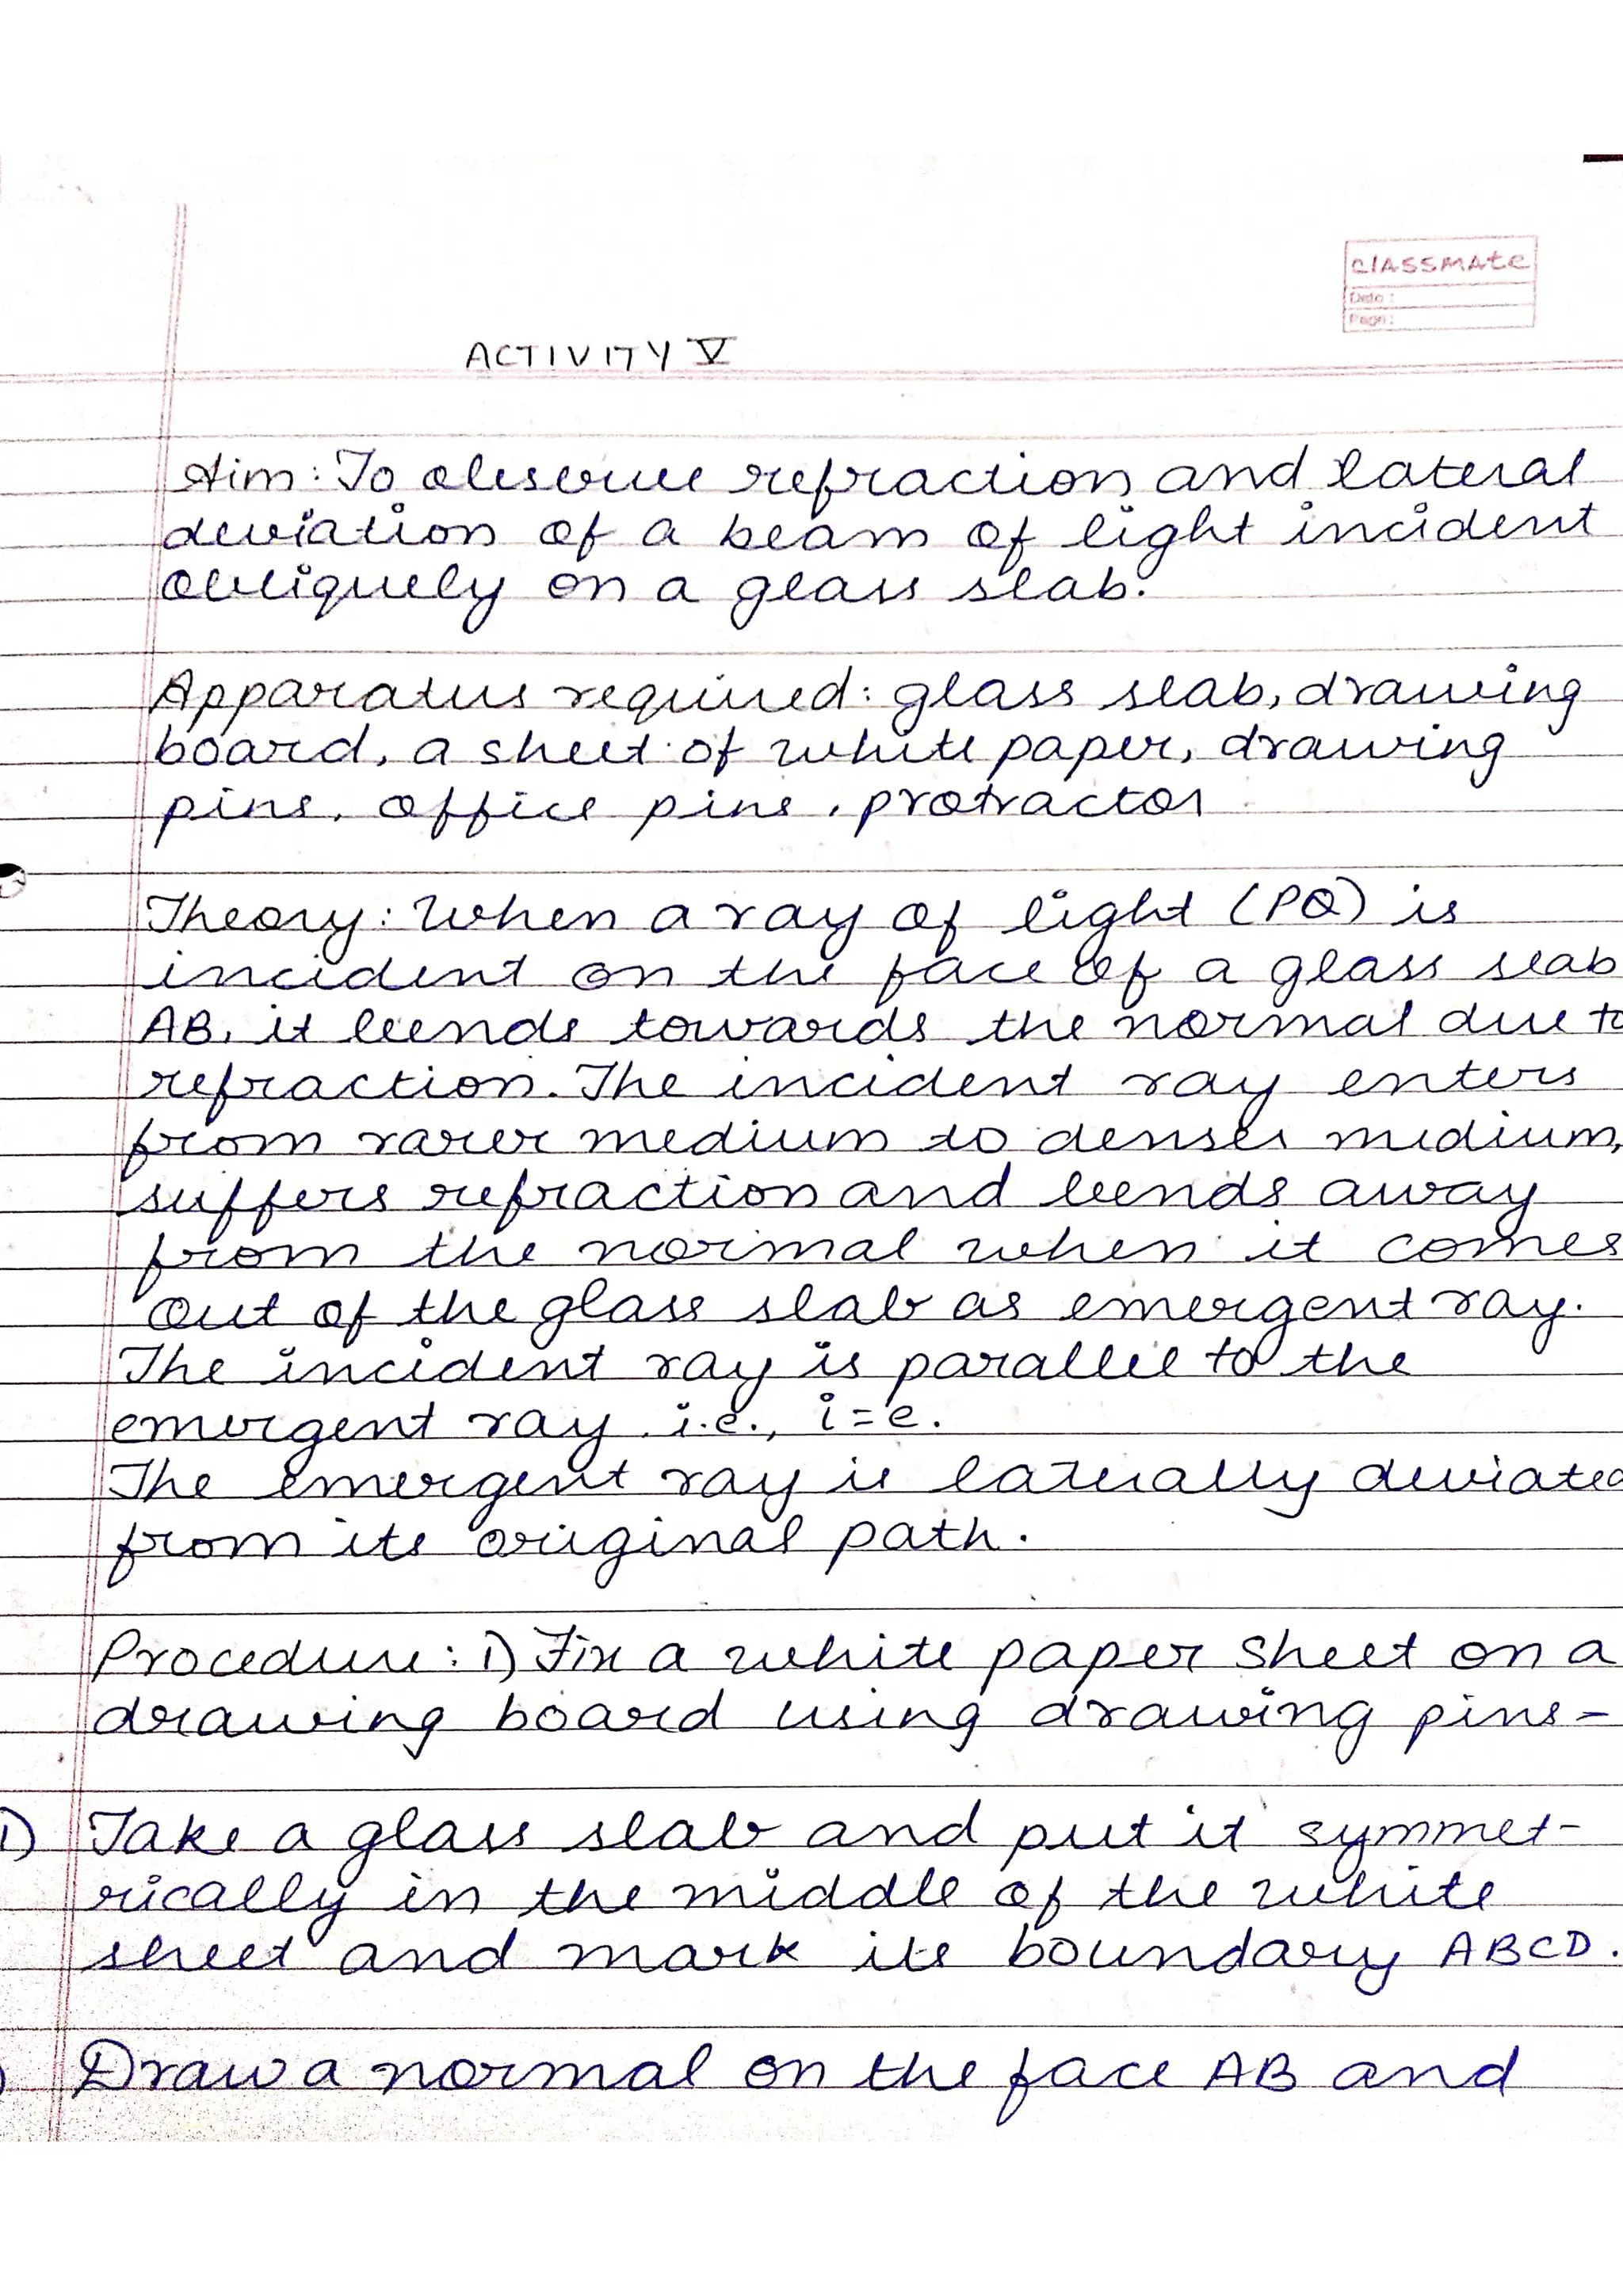 classmate
Date :
Page :
ACTIVITY V
Aim: To observe refraction and lateral
deviation of a beam of light incident
obliquely on a glass slab.
Apparatus required: glass slab, drawing
board, a sheet of white paper, drawing
pins, office pins, protractor
Theory: When a ray of light (PQ) is
incident on the face of a glass slab
AB, it bends towards the normal due to
refraction. The incident ray enters
from rarer medium to denser medium,
suffers refraction and bends away
from the normal when it comes
out of the glass slab as emergent ray.
The incident ray is parallel to the
emergent ray i.e., i=e.
The emergent ray is laterally deviated
from its original path.
Procedure: 1) Fix a white paper sheet on a
drawing board using drawing pins-
Take a glass slab and put it symmet-
rically in the middle of the white
sheet and mark its boundary ABCD.
Draw a normal on the face AB and